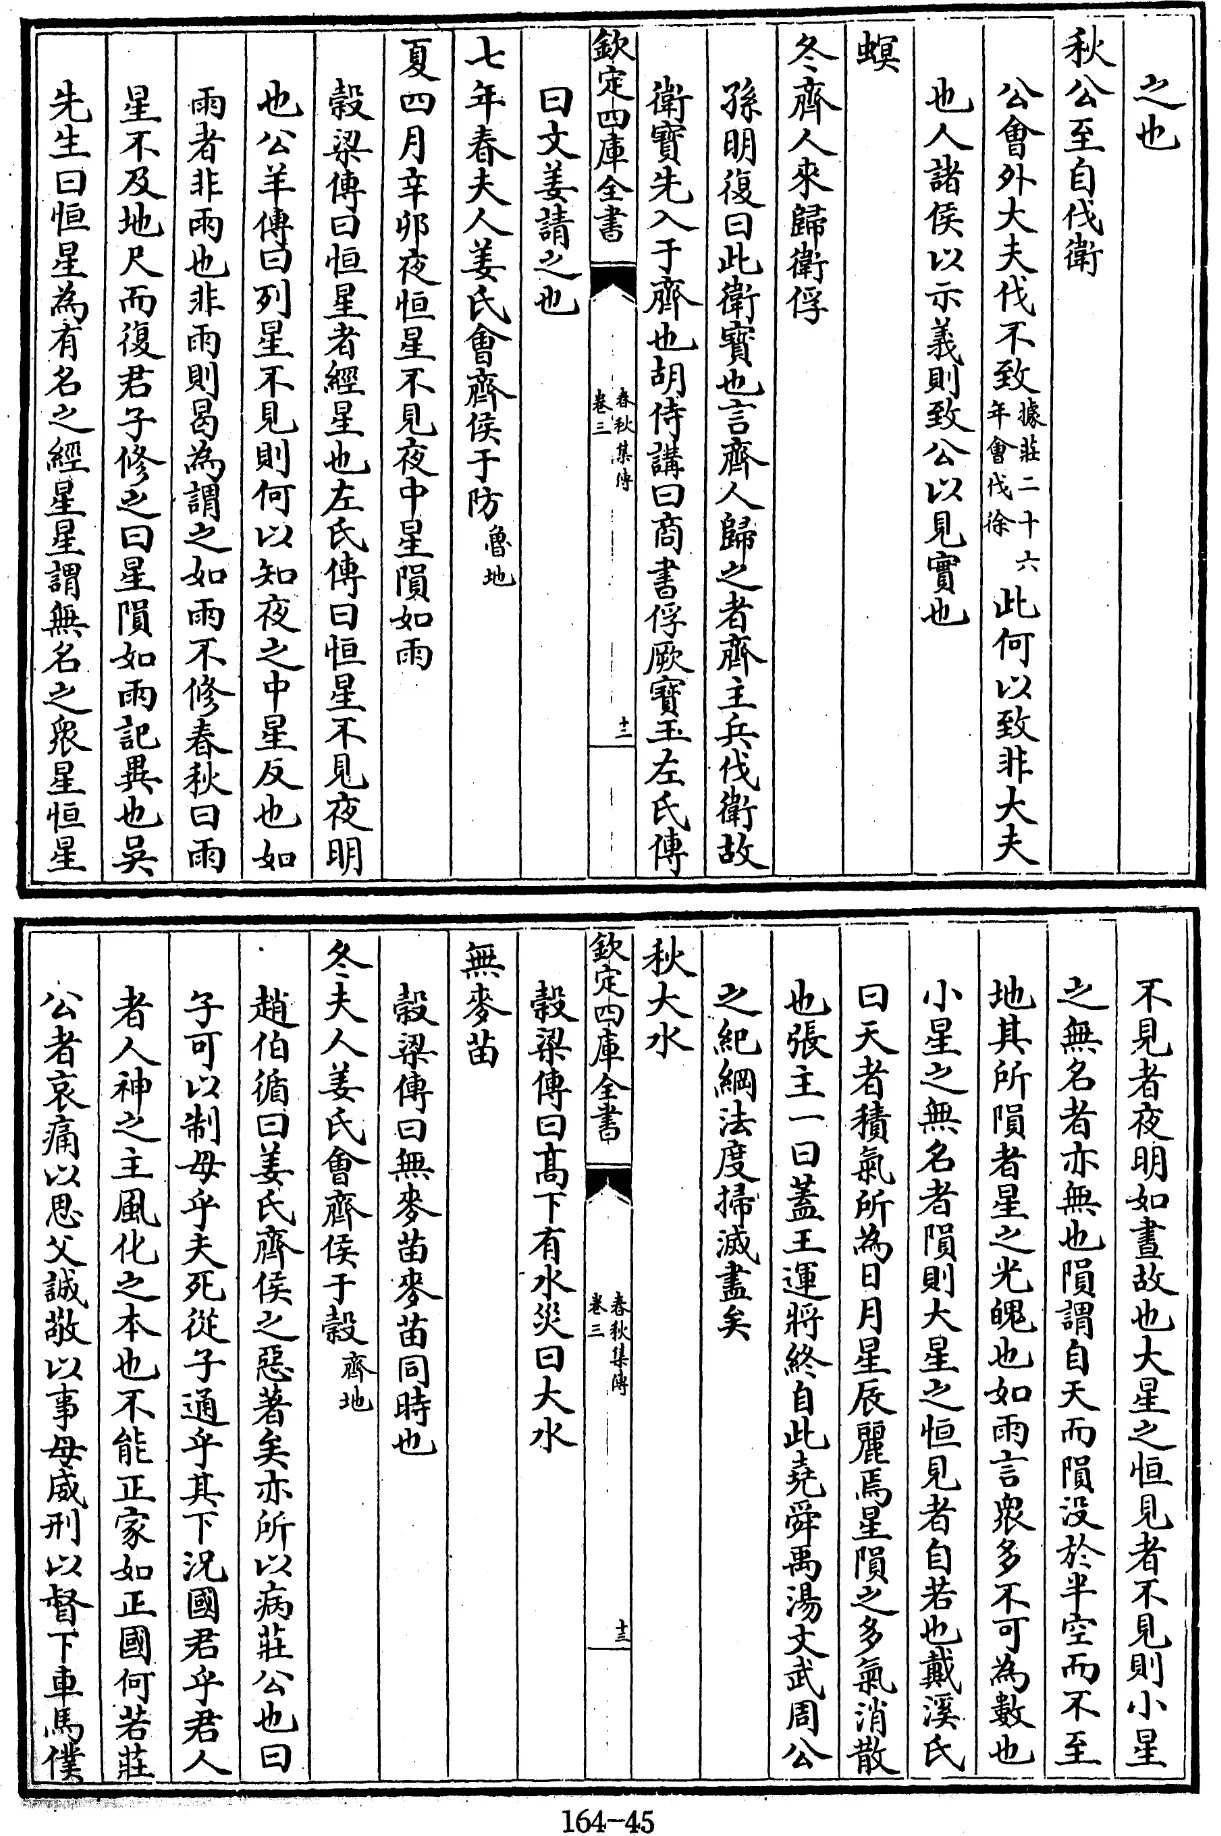 之也
秋公至自伐衛
公會外大夫伐不致據莊二十六年會伐徐此何以致非大夫
也人諸侯以示義則致公以見實也
螟
冬齊人來歸衛俘
孫明復曰此衛寳也言齊人歸之者齊主兵伐衛故
衛寳先入于齊也胡侍講曰商書俘厥寳玉左氏傳
欽定四庫全書
春秋集傳
卷三
十二
曰文姜請之也
七年春夫人姜氏會齊侯于防魯地
夏四月辛卯夜恒星不見夜中星隕如雨
榖梁傳曰恒星者經星也左氏傳曰恒星不見夜明
也公羊傳曰列星不見則何以知夜之中星反也如
雨者非雨也非雨則曷為謂之如雨不修春秋曰雨
星不及地尺而復君子修之曰星隕如雨記異也吳
先生曰恒星為有名之經星星謂無名之衆星恒星
不見者夜明如晝故也大星之恒見者不見則小星
之無名者亦無也隕謂自天而隕没於半空而不至
地其所隕者星之光魄也如雨言衆多不可為數也
小星之無名者隕則大星之恒見者自若也戴溪氏
曰天者積氣所為日月星辰麗焉星隕之多氣消散
也張主一曰蓋王運將終自此堯舜禹湯文武周公
之紀綱法度掃滅盡矣
秋大水
欽定四庫全書
春秋集傳
卷三
十三
榖梁傳曰髙下有水災曰大水
無麥苗
榖梁傳曰無麥苗麥苗同時也
冬夫人姜氏會齊侯于榖齊地
趙伯循曰姜氏齊侯之惡著矣亦所以病莊公也曰
子可以制母乎夫死從子通乎其下況國君乎君人
者人神之主風化之本也不能正家如正國何若莊
公者哀痛以思父誠敬以事母威刑以督下車馬僕
164-45